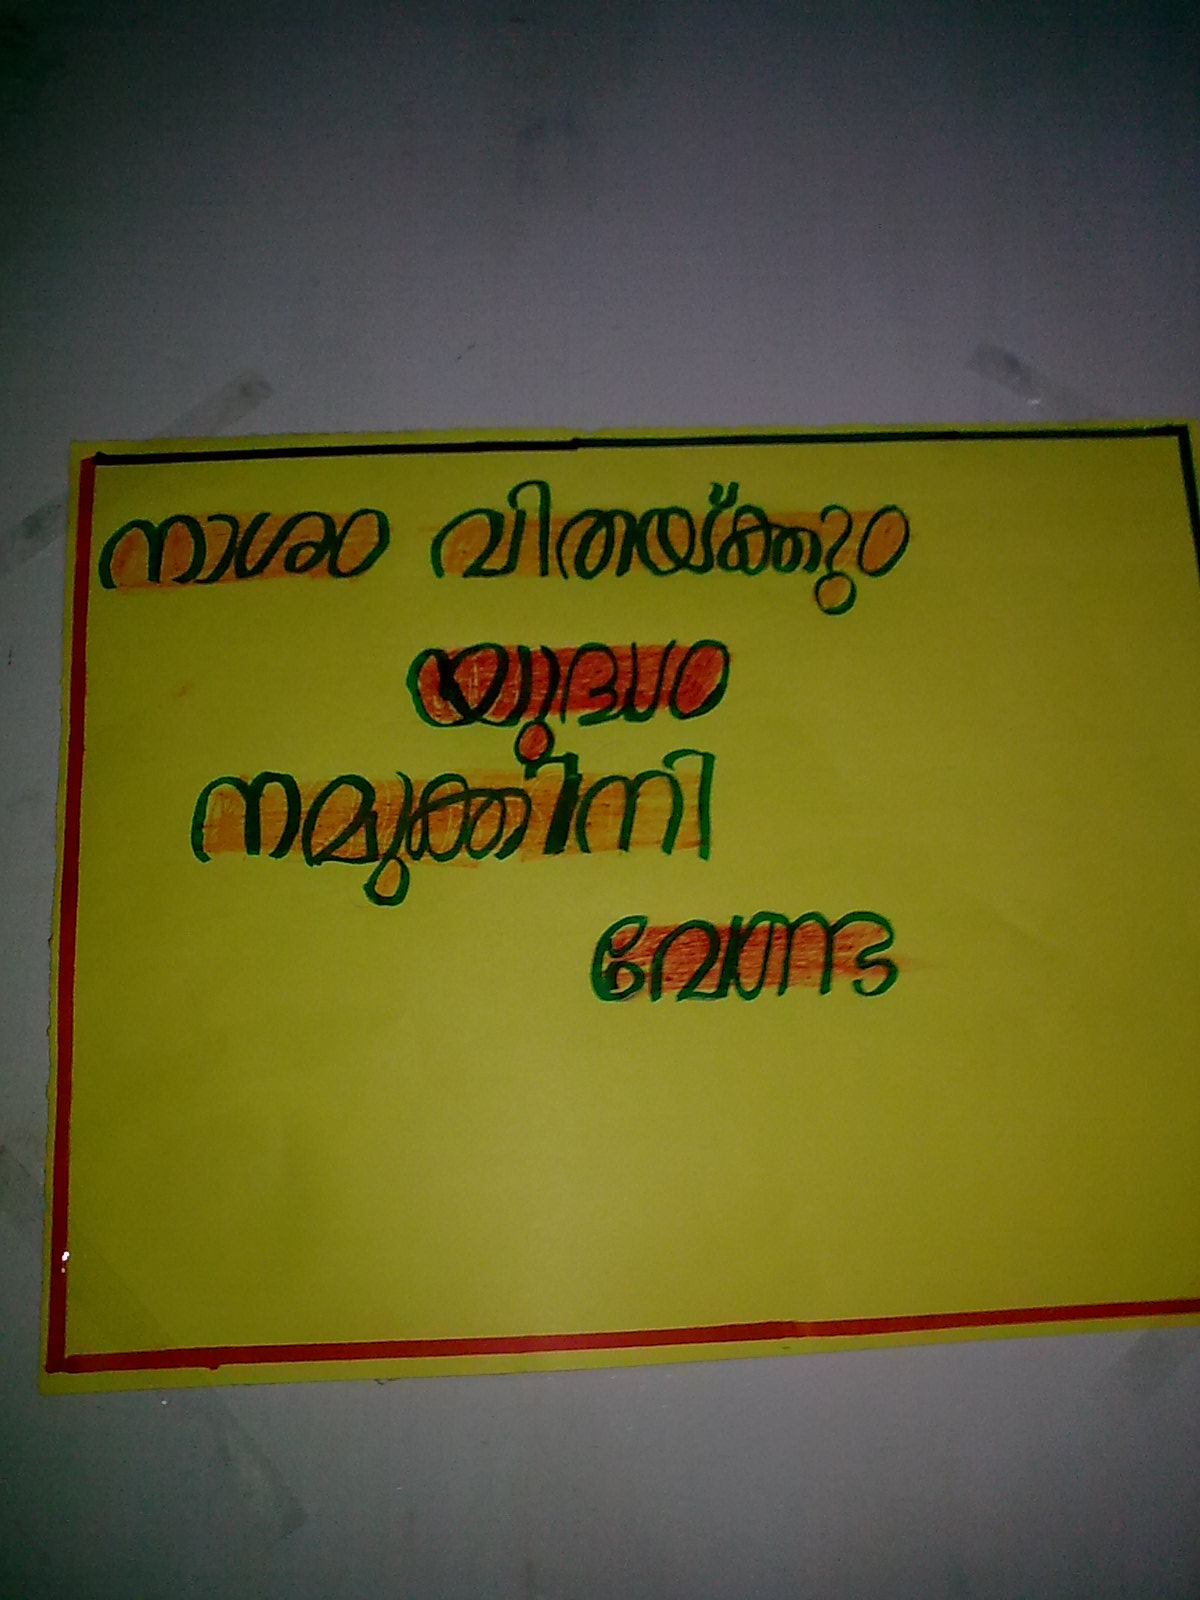 നാശം വിതയ്ക്കും
യുദ്ധം
നമുക്കിനി
വേണ്ട